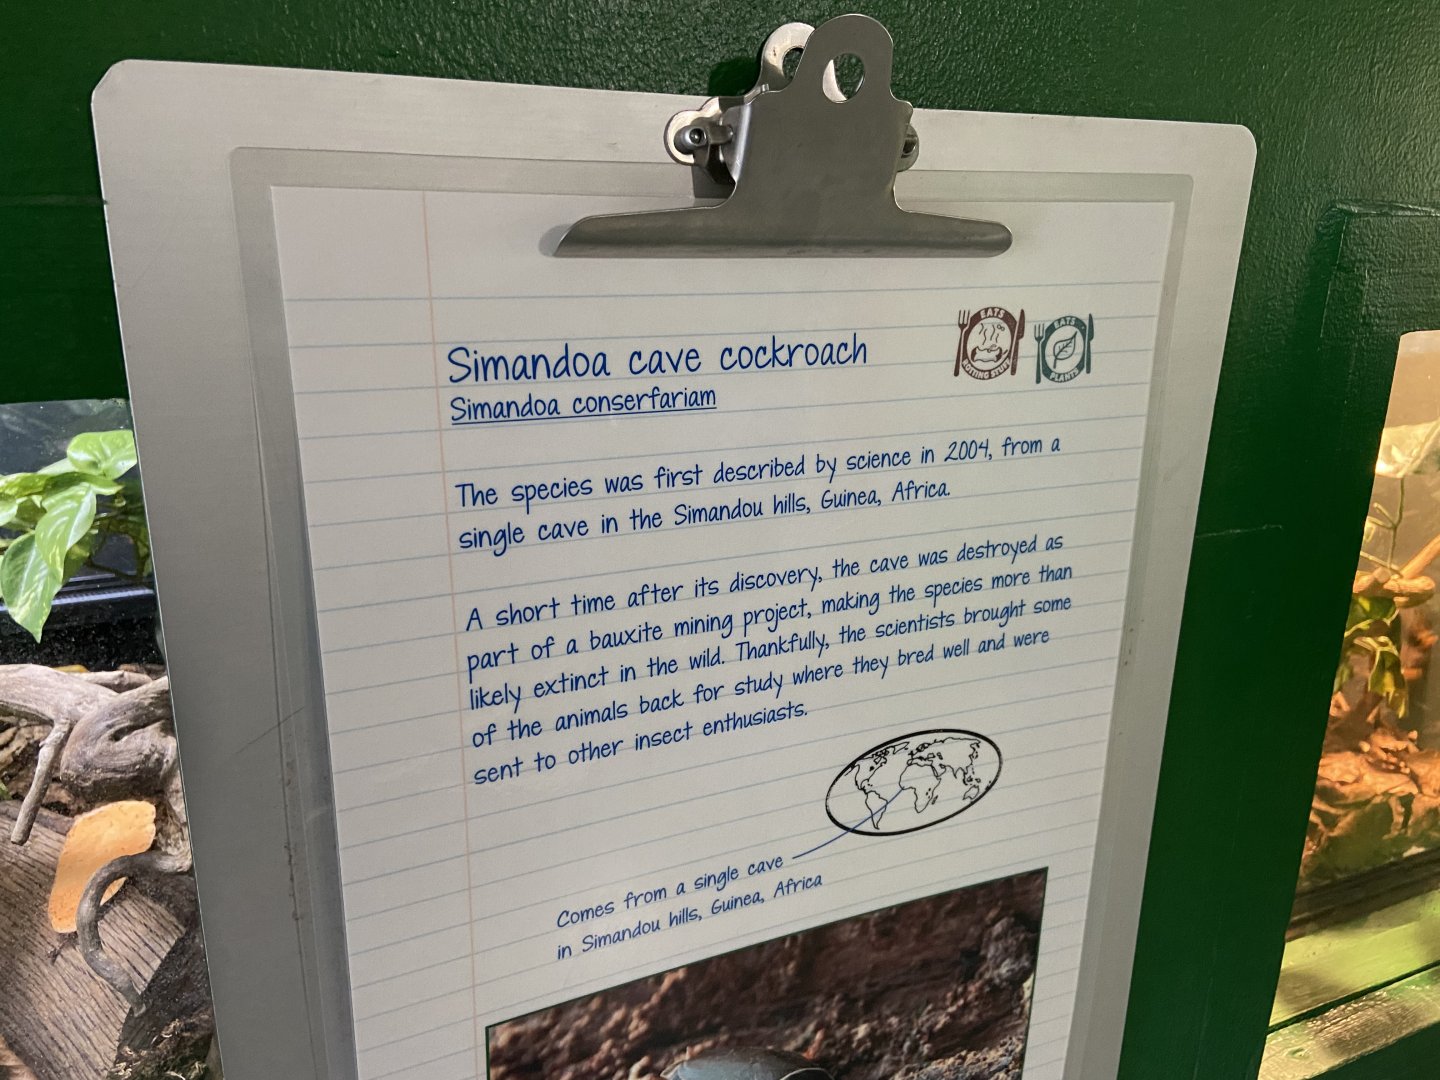 EATS
ROTTING STUFF
EATS
PLANTS
Simandoa cave cockroach
Simandoa conserfariam
The species was first described by science in 2004, from a
single cave in the Simandou hills, Guinea, Africa.
A short time after its discovery, the cave was destroyed as
part of a bauxite mining project, making the species more than
likely extinct in the wild. Thankfully, the scientists brought some
of the animals back for study where they bred well and were
sent to other insect enthusiasts.
Comes from a single cave
in Simandou hills, Guinea, Africa